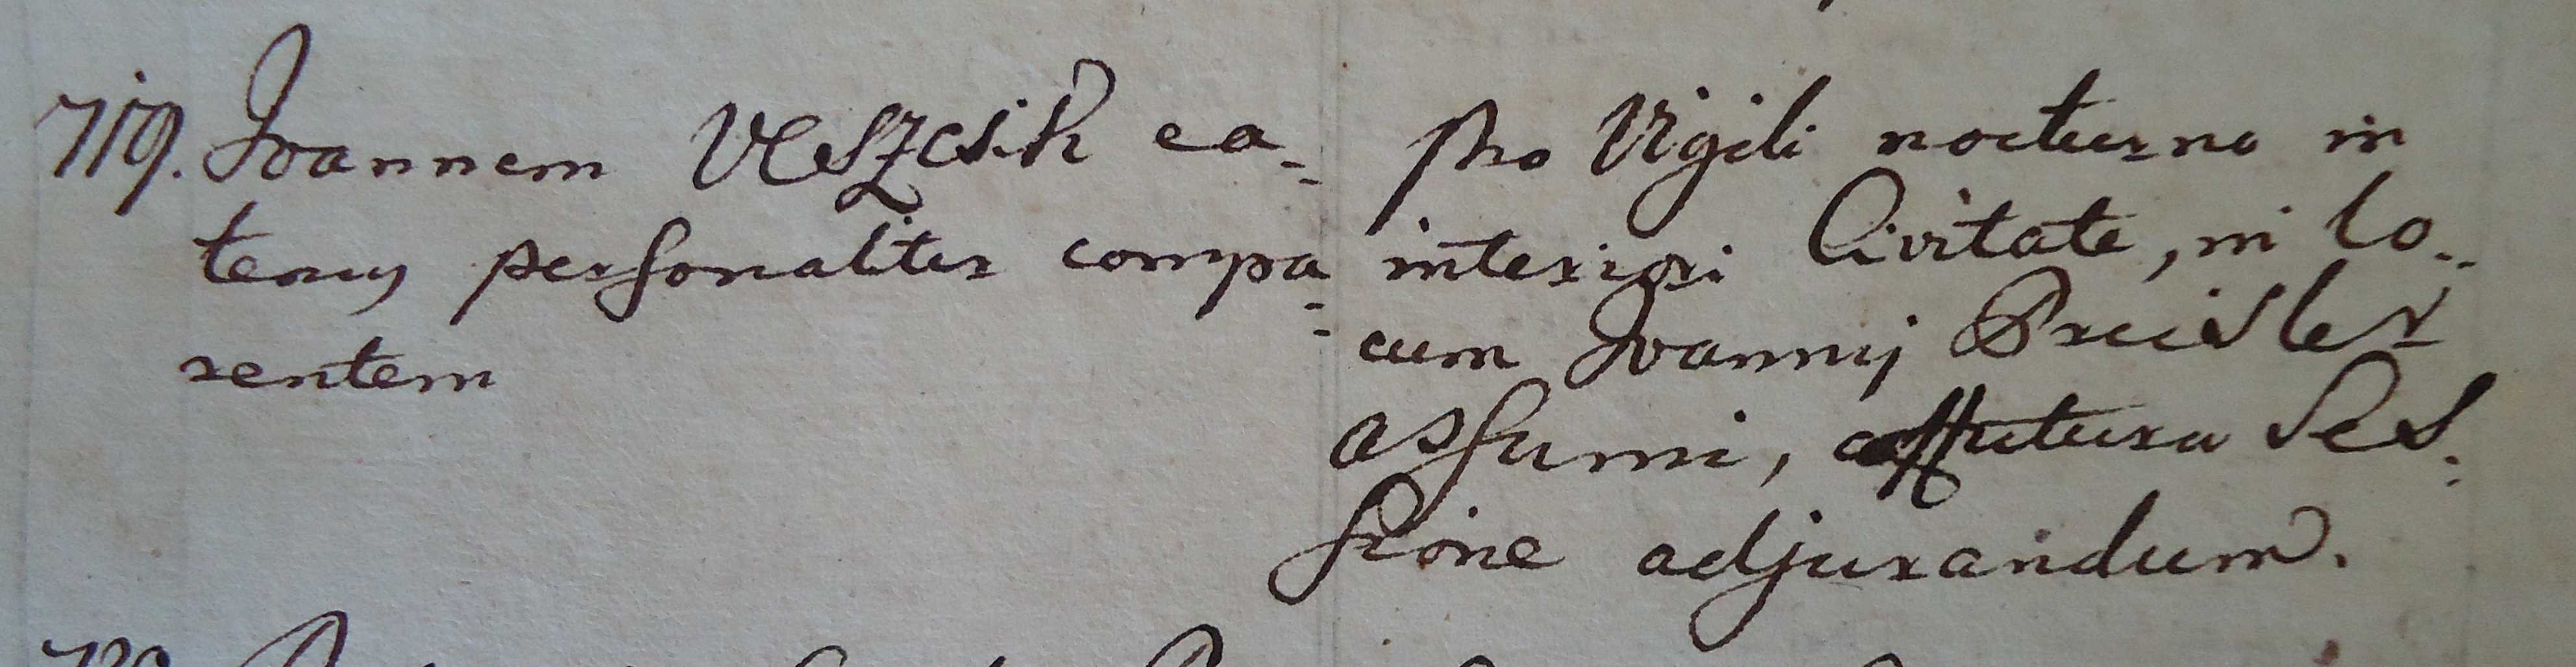 719. Joannem Veszcsik ea-
tenus personaliter compa-
rentem
pro Vigili nocturno in
interiori Civitate, in lo-
cum Joannis Preisler
assumi, futura Ses-
sione adjurandum.